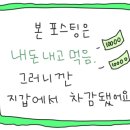 본 포스팅은
내돈 내고 먹음.
그러니깐
지갑에서 차감됐어요